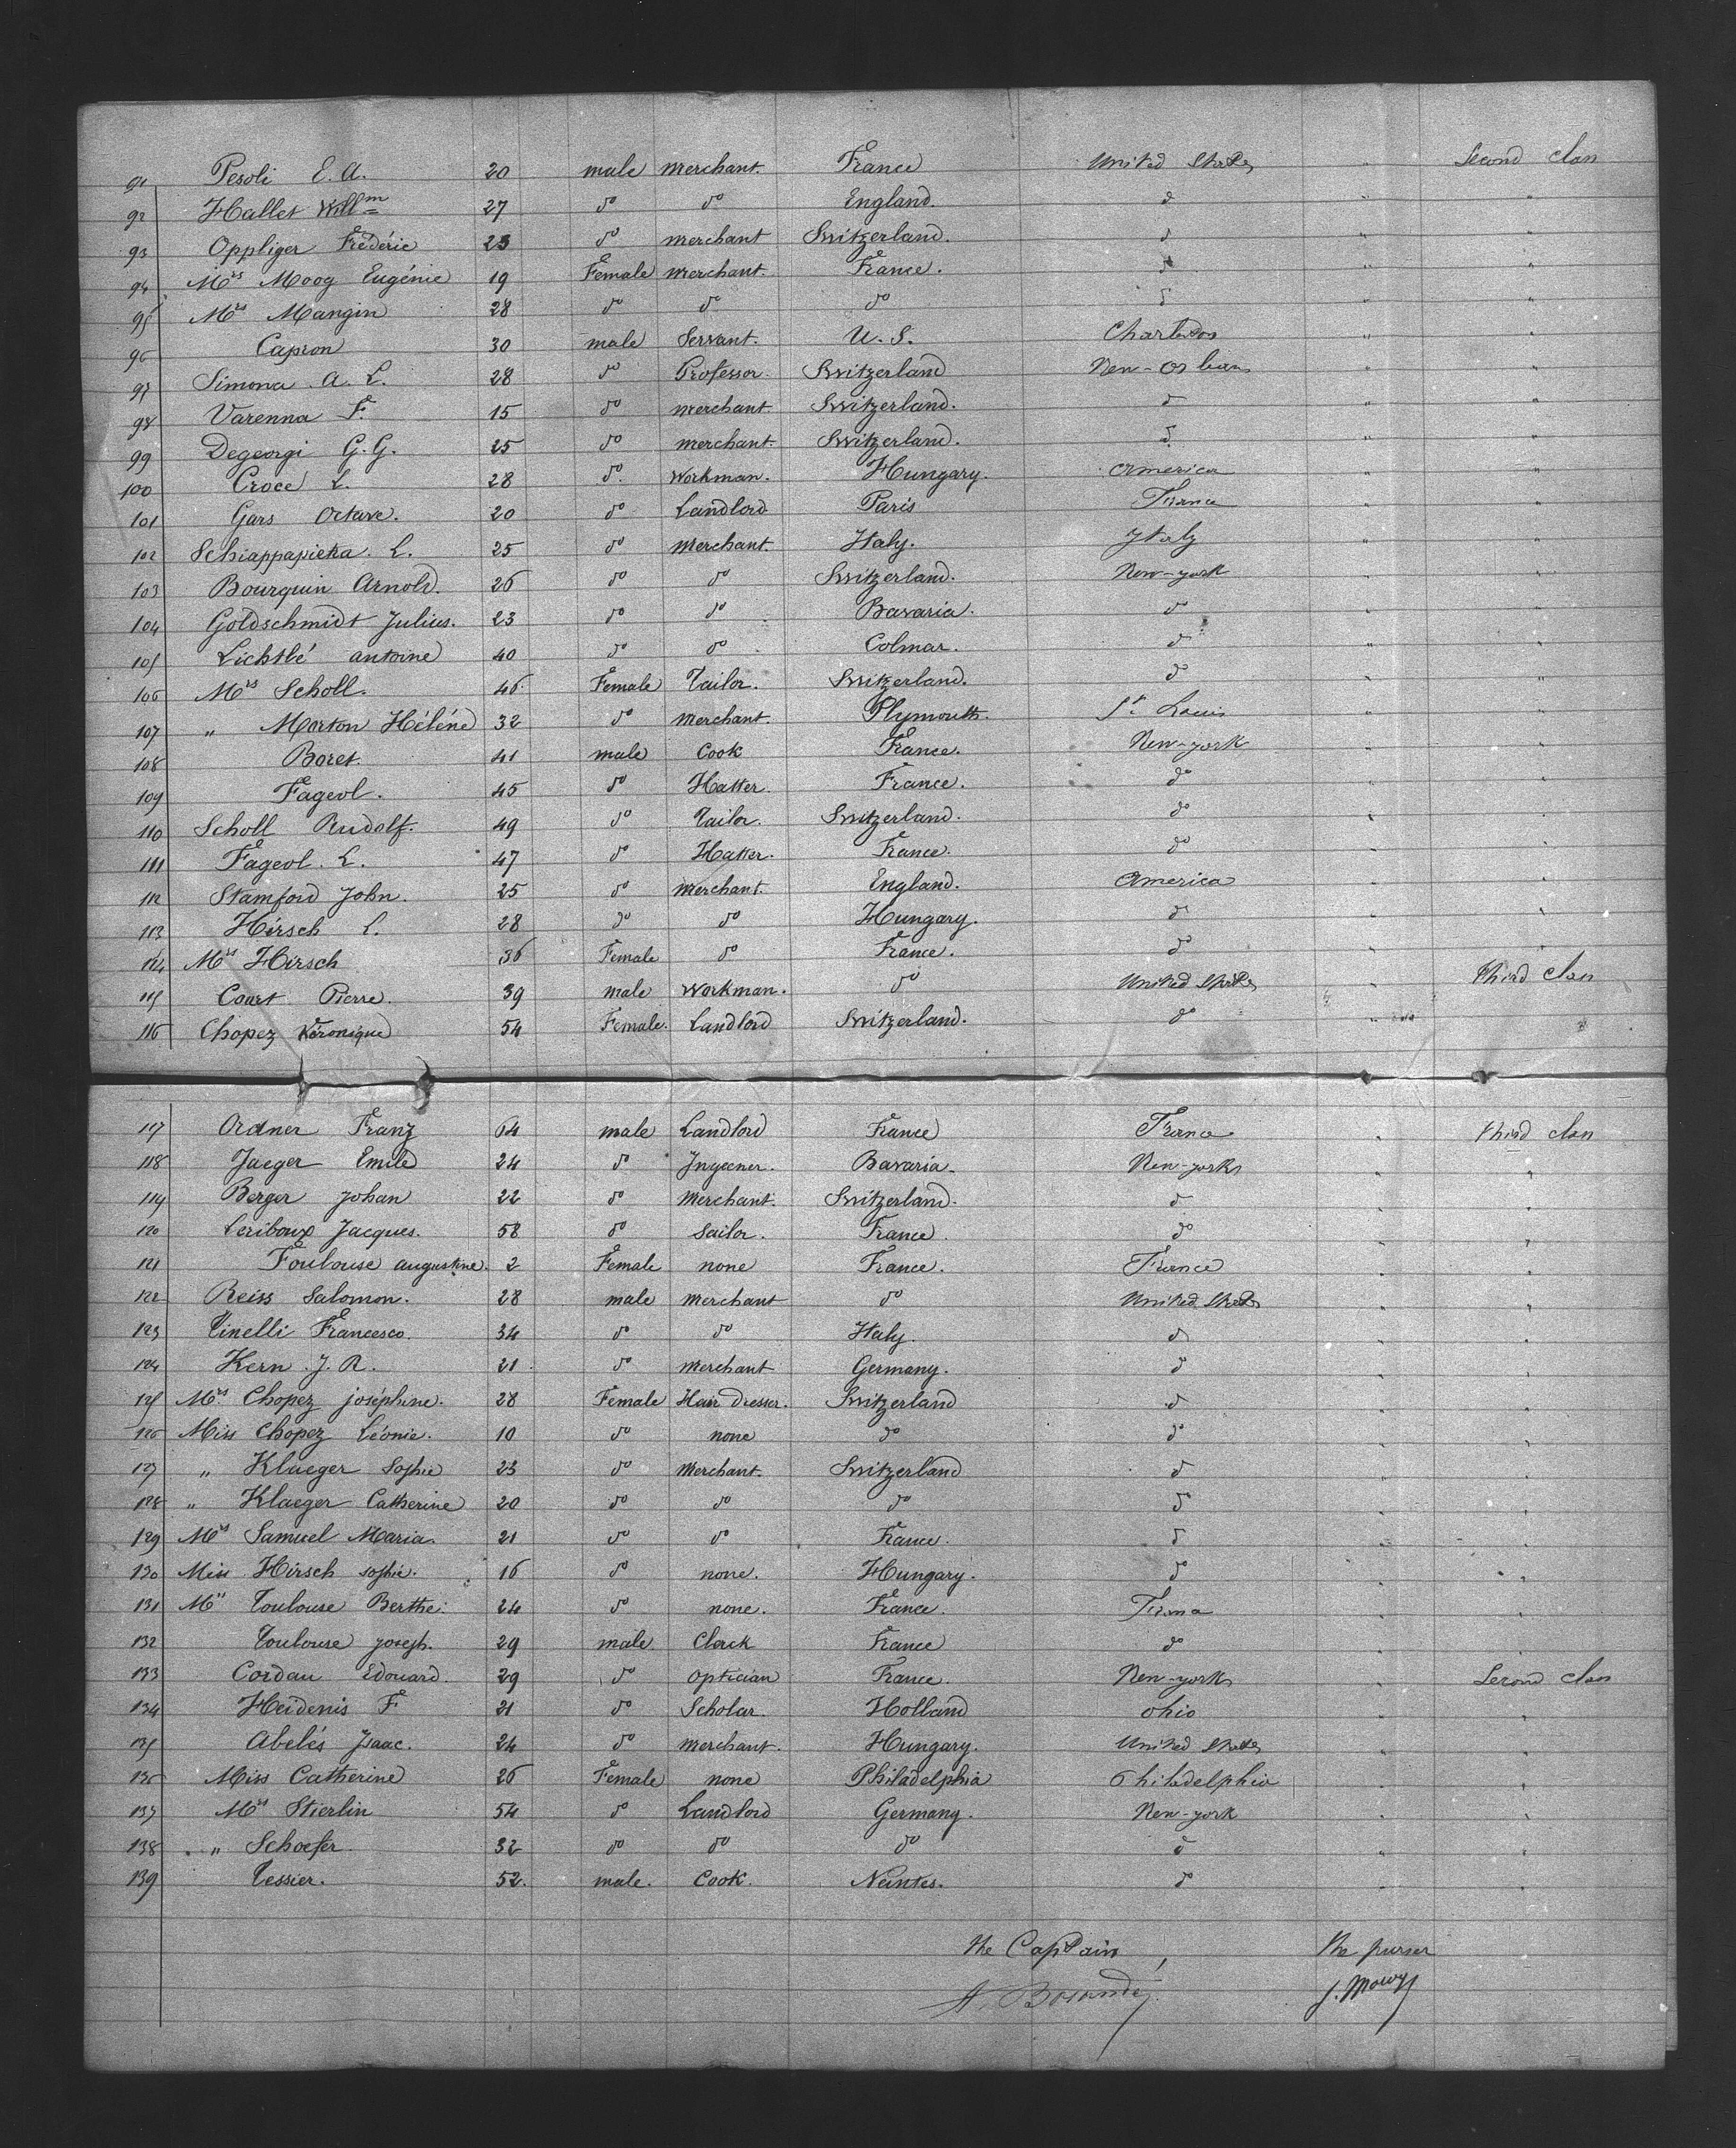 91 Pesoli E. A. 20 male merchant. France United States " Second Class
92 Hallet Willm 27 do do England. do " "
93 Oppliger Frédéric 23 do merchant Switzerland. do " "
94 Mrs Moog Eugénie 19 Female merchant. France. do " "
95 Mrs Mangin 28 do do do do " "
96 Capron 30 male Servant. U. S. Charleston " "
97 Simona A. L. 28 do Professor. Switzerland New-Orleans " "
98 Varenna F. 15 do merchant Switzerland. do " "
99 Degeorgi G. G. 25 do merchant. Switzerland. do " "
100 Croce L. 28 do. Workman. Hungary. America " "
101 Gars Octave. 20 do Landlord Paris France " "
102 Schiappapietra. L. 25 do merchant. Italy. Italy " "
103 Bourquin Arnold. 26 do do Switzerland. New-york " "
104 Goldschmidt Julius. 23 do do Bavaria. do " "
105 Lichtlé antoine 40 do do Colmar. do " "
106 Mrs Scholl. 46. Female Tailor. Switzerland. do " "
107 " Morton Hélène 32 do merchant. Plymouth. St Louis " "
108 Boret. 41 male Cook France. New-york " "
109 Fageol. 45 do Hatter. France. do " "
110 Scholl Rudolf. 49 do Tailor. Switzerland. do " "
111 Fageol. L. 47 do Hatter. France. do " "
112 Stamford John. 25 do merchant. England. America " "
113 Hirsch L. 28 do do Hungary. do " "
114 Mrs Hirsch 36 Female do France. do " "
115 Court Pierre. 39 male Workman. do United States " third Class
116 Chopez Véronique 54 Female. Landlord Switzerland. do "
117 Ordner Franz 64 male Landlord France France " third class
118 Jaeger Emile 24 do Ingeener. Bavaria. New-york " "
119 Berger Johan 22 do merchant. Switzerland. do " "
120 Leriboux Jacques. 58 do Sailor. France. do " "
121 Toulouse augustine. 2 Female none France. France " "
122 Reiss Salomon. 28 male merchant do United States " "
123 Tinelli Francesco. 34 do do Italy. do " "
124 Kern. J. R. 21 do merchant Germany. do " "
125 Mrs Chopez joséphine. 28 Female Hair Dresser. Switzerland do " "
126 Miss Chopez Léonie. 10 do none do do " "
127 " Klaeger Sophie 23 do Merchant. Switzerland do " "
128 " Klaeger Catherine 20 do do do do " "
129 Mrs Samuel Maria. 21 do do France. do " "
130 Miss Hirsch sophie. 16 do none. Hungary. do " "
131 Mrs Toulouse Berthe. 24 do none. France. France " "
132 Toulouse joseph. 29 male Clerck France do " "
133 Cordau Edouard. 29 do optician France. New-york " Second Class
134 Heidenis F 21 do Scholar. Holland ohio " "
135 Abelés Isaac. 24 do merchant. Hungary. United States " "
136 Miss Catherine 26 Female none Philadelphia Philadelphia " "
137 Mrs Stierlin 54 do Landlord Germany. New-york " "
138 " Schoefer 32 do do do do " "
139 Tessier. 52. male. Cook. Nantes. do " "
the Captain, the purser
J. Mouy